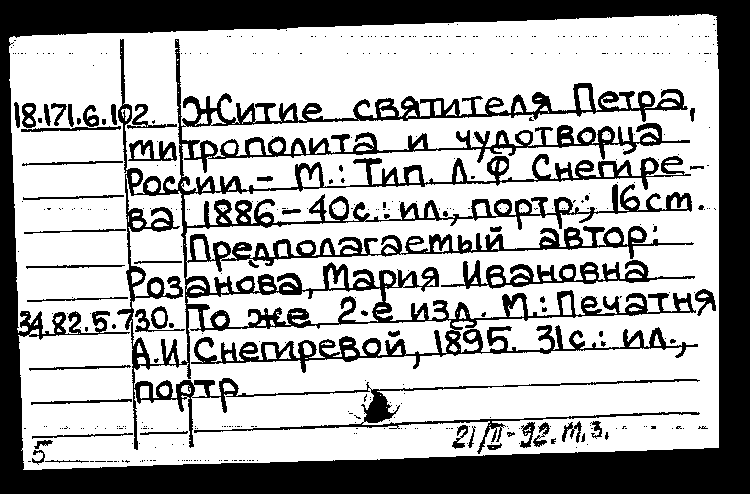 18.171.6.102. Житие святителя Петра,
митрополита и чудотворца
России.- М.: Тип. Л.Ф. Снегире-
ва, 1886.- 40с.: ил., портр.; 16 ст.
Предполагаемый автор:
Розанова, Мария Ивановна
34.82.5.730. То же. 2-е изд. М.: Печатня
А.И. Снегиревой, 1895. 31с.: ил.,
портр.
21/II-92. М.З.
5